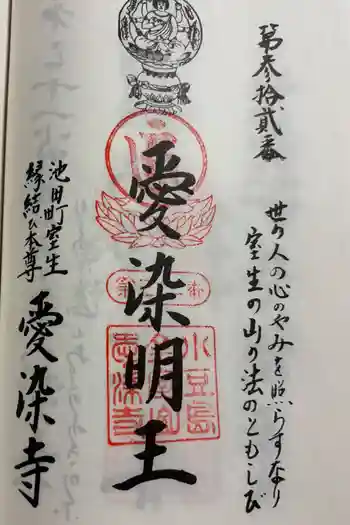 第参拾貳番
世の人の心のやみを照らすなり
室生の山の法のともしび
愛染明王
池田町室生
縁結び本尊
愛染寺